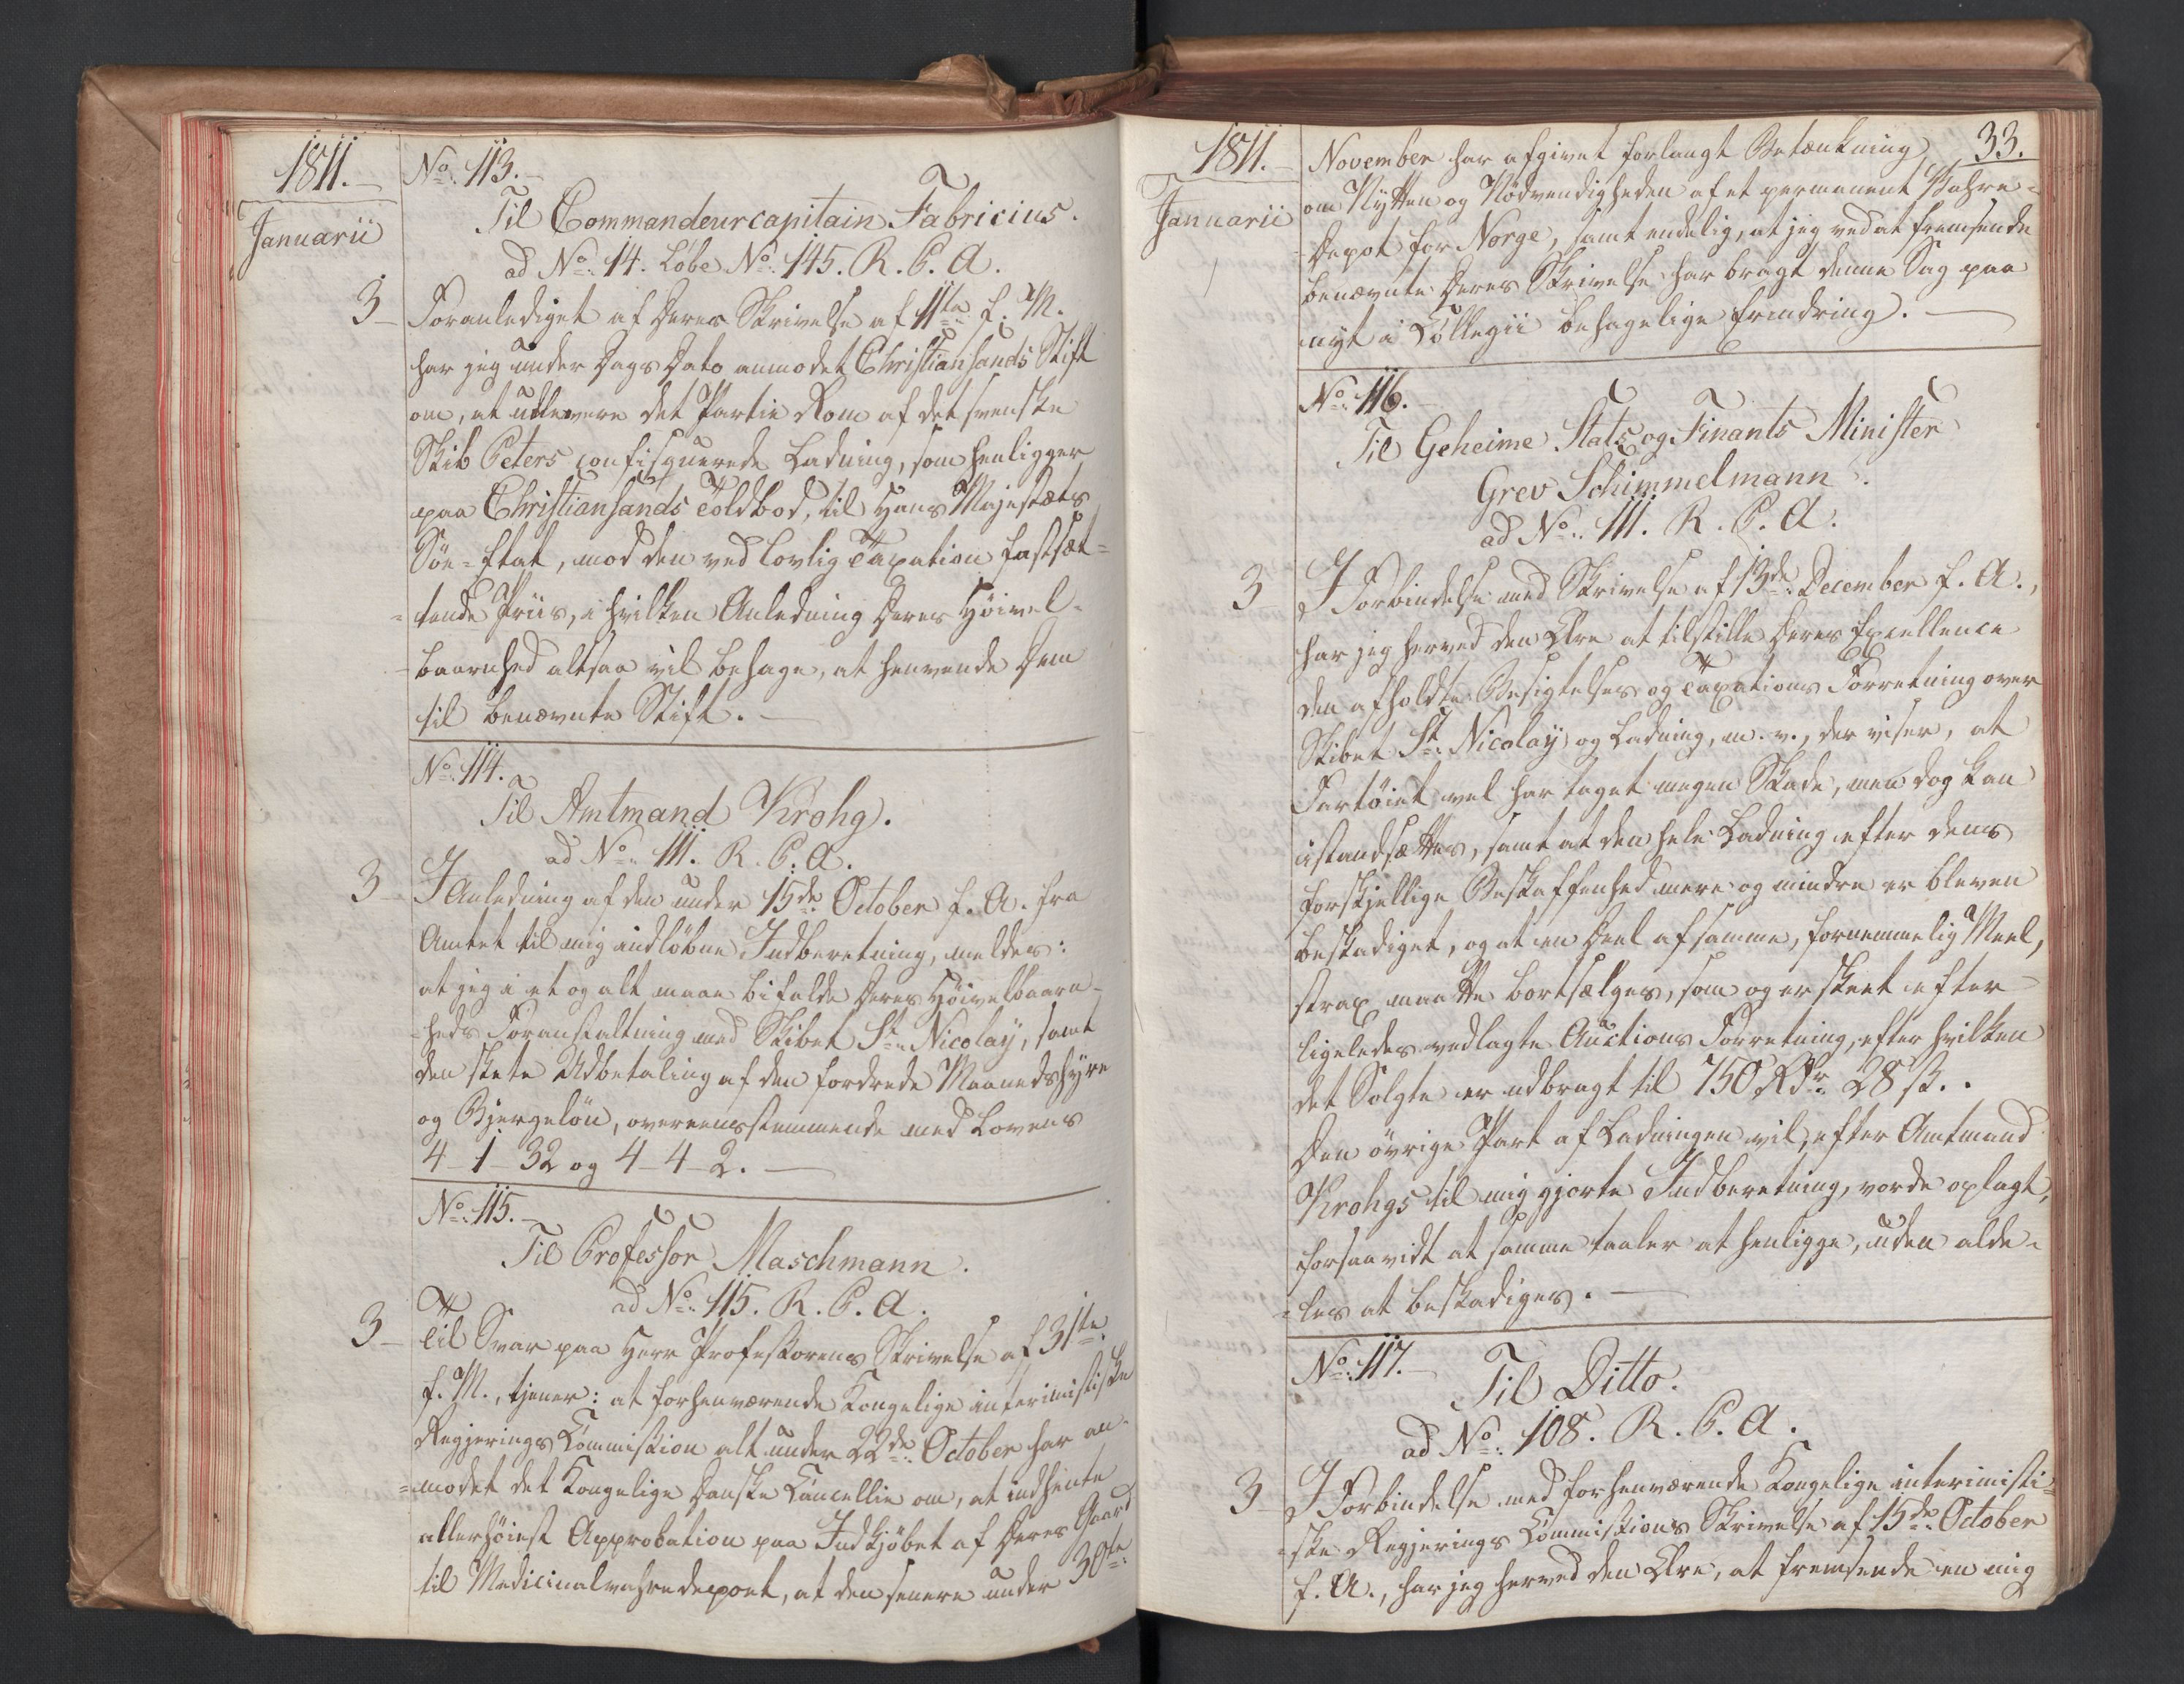 1811.
Januarii
No. 113.
Til Commandeurcapitain Fabricius.
ad No. 14. Løbe No. 145. R. C. A.
3 Foranlediget af Deres Skrivelse af 11te f. M.
har jeg under Dags Dato anmodet Christiansands Stift
om, at udlevere det Partie Rom af det svenske
Skib Peters confisquerede Ladning, som henligger
paa Christiansands Toldbod, til Hans Majestæts
Söe-Etat, mod den ved lovlig Taxation fastsæt-
tende Priis, i hvilken Anledning Deres Höivel-
baarnhed altsaa vil behage, at henvende Dem
til benævnte Stift.
No. 114.
Til Amtmand Krohg.
ad No. 111. R. C. A.
3 I Anledning af den under 15de October f. A. fra
Amtet til mig indløbne Indberetning, meldes:
at jeg i et og alt maae bifalde Deres Höivelbaarn-
heds Foranstaltning med Skibet St. Nicolay, samt
den skete Udbetaling af den fordrede Maanedshyre
og Bjergelön, overeensstemmende med Lovens
4-1-32 og 4-4-2.
No. 115.
Til Professor Maschmann.
ad No. 115. R. C. A.
3 Til Svar paa Herr Professorens Skrivelse af 31te
f. M., tjener: at forhenværende Kongelige interimistiske
Regjerings Commission alt under 22de October har an-
modet det Kongelige Danske Cancellie om, at indhente
allerhöiest Approbation paa Indkjöbet af Deres Gaard
til Medicinalvahredepoet, at den senere under 30te
1811.
Januarii
33.
November har afgivet forlangt Betænkning
om Nytten og Nödvendigheden af et permanent Vahre-
Depot for Norge, samt endelig, at jeg ved at fremsende
benævnte Deres Skrivelse har bragt denne Sag paa
nyt i Collegii behagelige Erindring.
No. 116.
Til Geheime Stats og Finants Minister
Grev Schimmelmann.
ad No. 111. R. C. A.
3 I Forbindelse med Skrivelse af 13de December f. A.,
har jeg herved den Ære at tilstille Deres Excellence
den afholdte Besigtelses og Taxations Forretning over
Skibet St. Nicolay og Ladning, m. v., der viser, at
Fartöiet vel har taget megen Skade, men dog kan
istandsættes, samt at den hele Ladning efter dens
forskjellige Beskaffenhed mere og mindre er bleven
beskadiget, og at en Deel af samme, fornemmelig Meel,
strax maatte bortsælges, som og er skeet efter
ligeledes vedlagte Auctions Forretning, efter hvilken
det Solgte er udbragt til 750 Rdr. 28 ß.
Den övrige Part af Ladningen vil, efter Amtmand
Krohgs til mig gjorte Indberetning, vorde oplagt,
forsaavidt at samme taaler at henligge, uden alde-
les at beskadiges.
No. 117.
Til Ditto.
ad No. 108. R. C. A.
3 I Forbindelse med forhenværende Kongelige interimisti-
ske Regjerings Commissions Skrivelse af 15de October
f. A., har jeg herved den Ære, at fremsende en mig